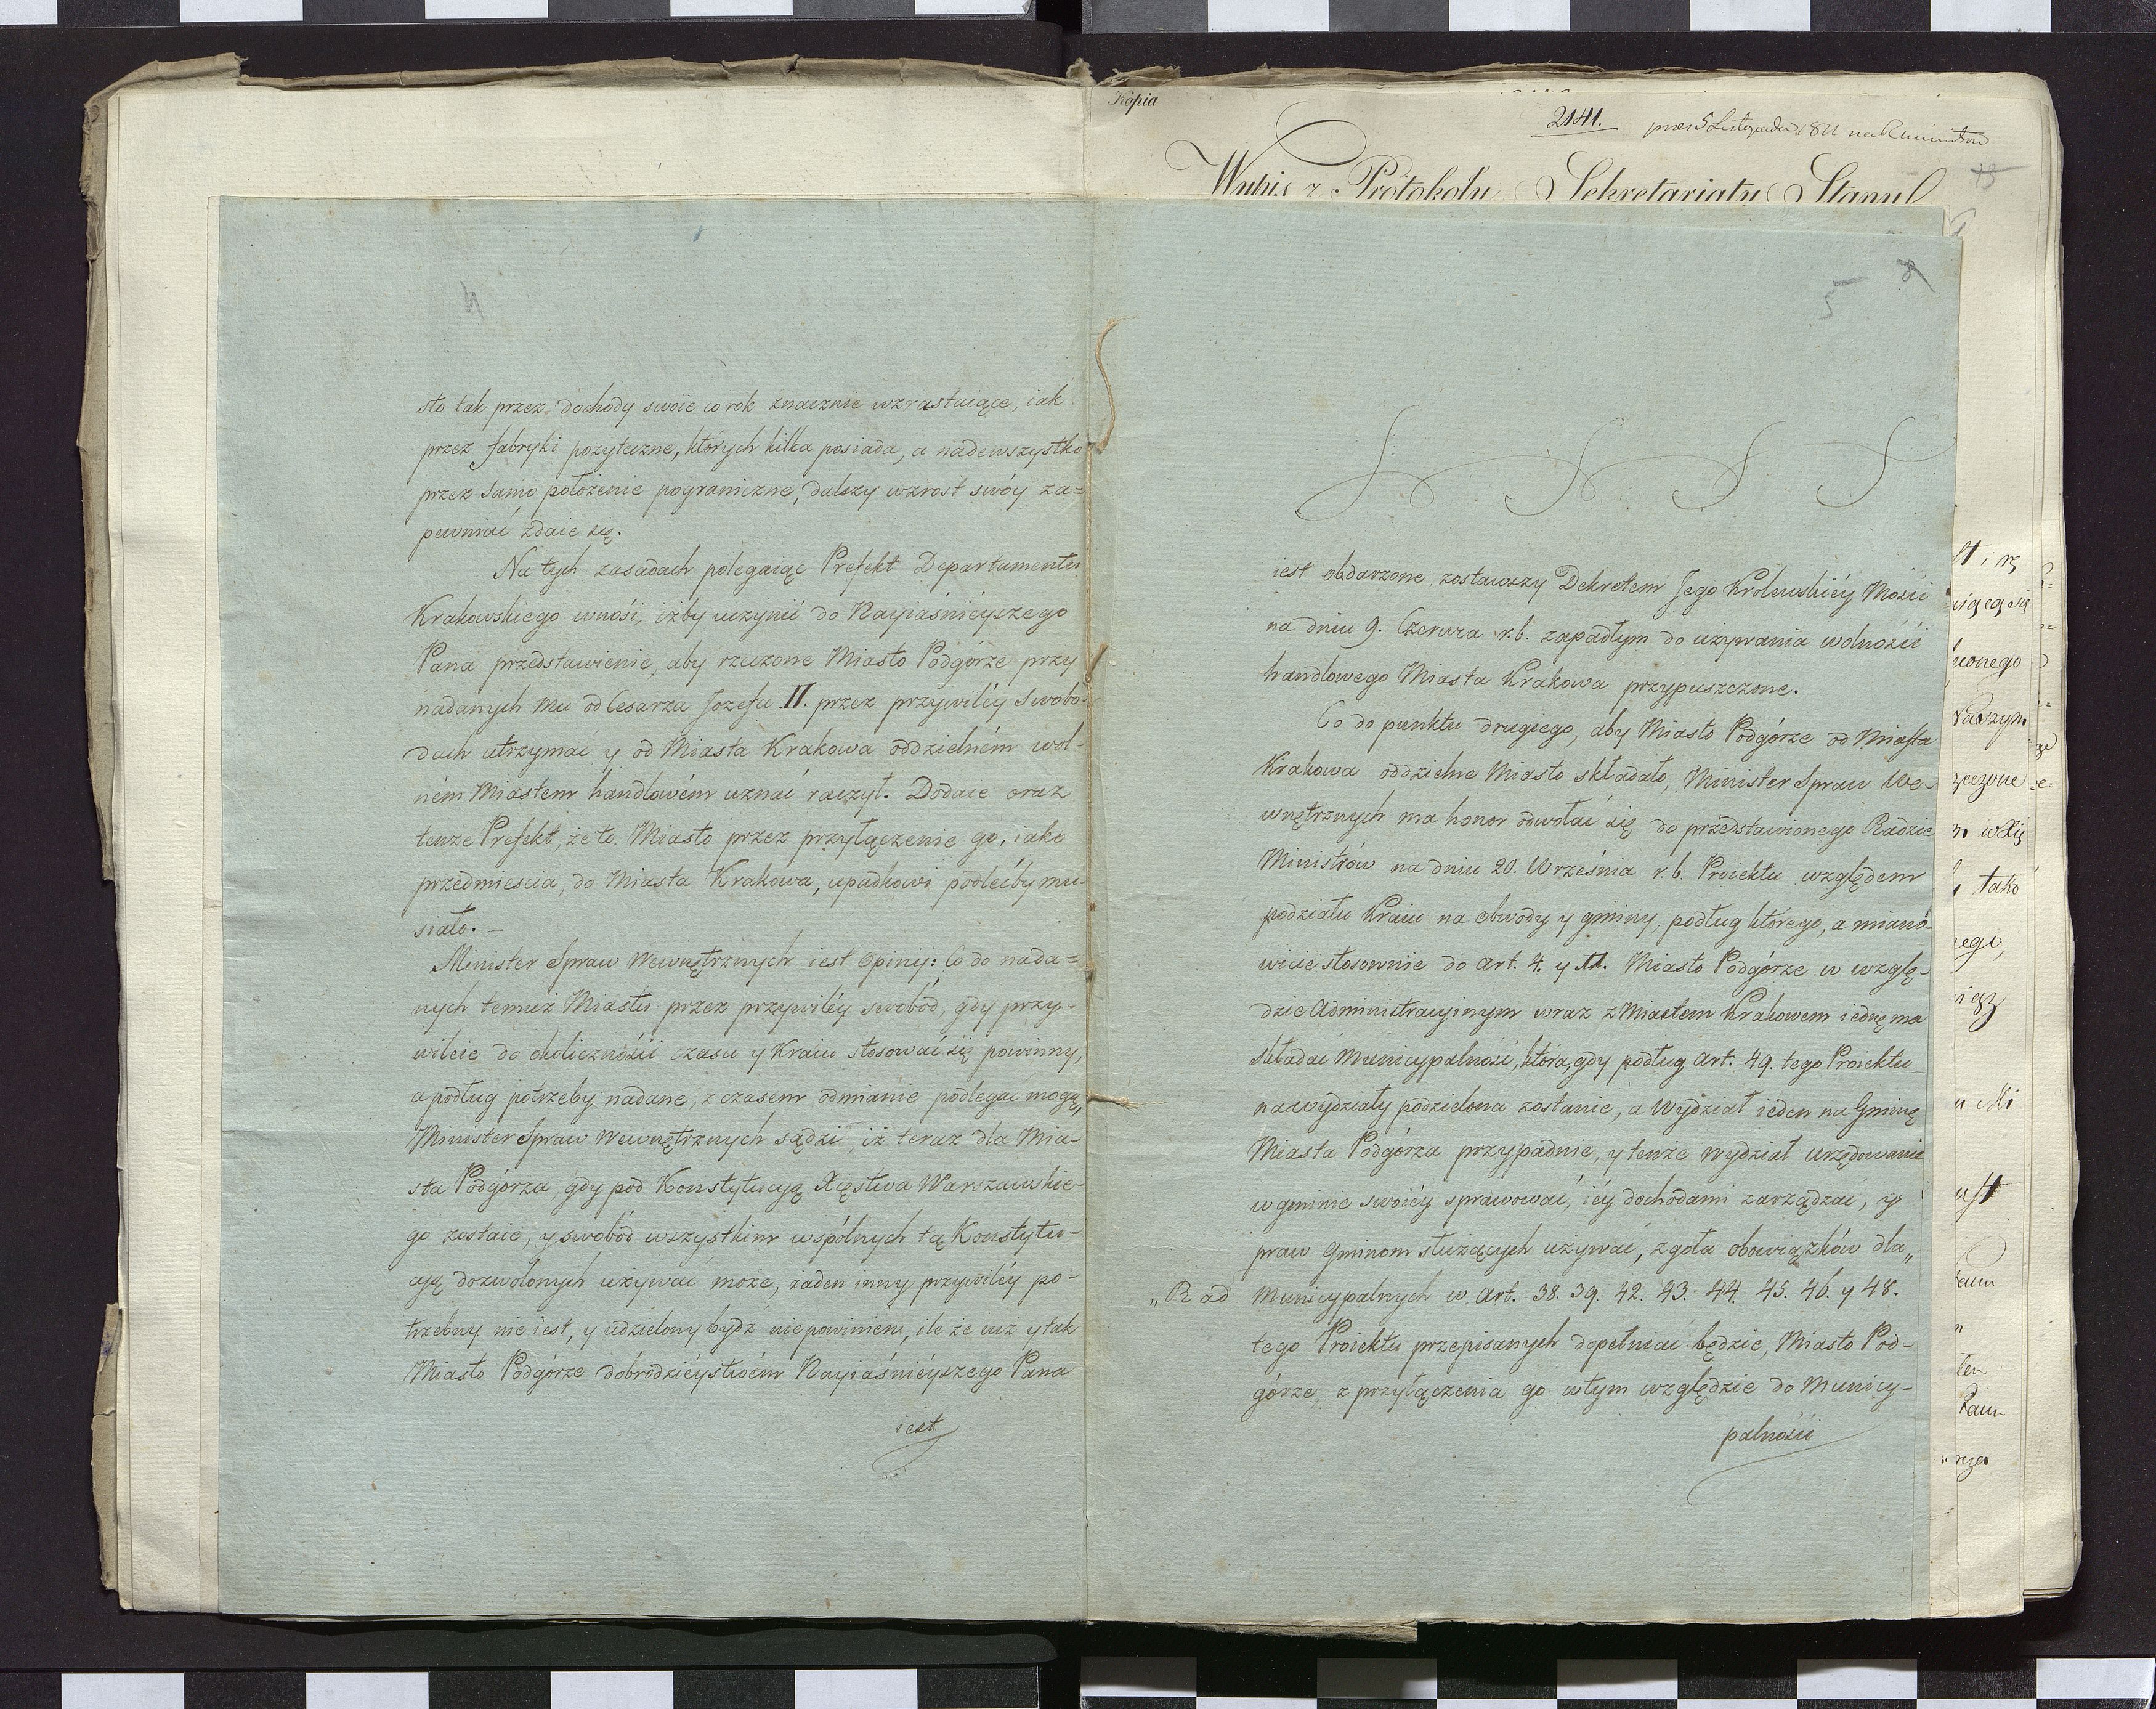 4
sto tak przez dochody swoie corok znacznie wzrastaiące, iak
przez fabryki pozyteczne, których kilka posiada, a nadewszystko
przez samo położenie pograniczne, dalszy wzrost swóy za=
pewniać zdaie się.
Na tych zasadach polegaiąc Prefekt Departamentu
Krakowskiego wnosi, iżby uczynić do Nayiaśnieyszego
Pana przedstawienie, aby rzeczone Miasto Podgórze przy
nadanych mu od Cesarza Jozefa II. przez przywiléy swobo-
dach utrzymać y od Miasta Krakowa oddzielném wol-
ném Miastem handlowém uznać raczył. Dodaie oraz
tenże Prefekt, że to Miasto przez przyłączenie go, iako
przedmiescia, do Miasta Krakowa, upadkowi podlećby mu-
siało. –
Minister Spraw Wewnętrznych iest Opinij: Co do nada=
nych temuż Miastu przez przywiléy swobód, gdy przy-
wileie do okoliczności czasu y Kraiu stosować się powinny,
a podług potrzeby nadane, z czasem odmianie podlegać mogą,
Minister Spraw Wewnętrznych sądzi, iż teraz dla Mia-
sta Podgórza, gdy pod Konstytucyą Xięstwa Warszawskie-
go zostaie, y swobód wszystkim wspólnych tą Konstytu-
cyą dozwolonych używać może, żaden inny przywiléy po-
trzebny nie iest, y udzielony bydź niepowinien, ile że iuż y tak
Miasto Podgórze dobrodzieystwém Nayiaśnieyszego Pana
iest
Kopia
2141. 5 Listopada 1811
Wypis z Protokołu Sekretariatu Stanu
13
5 8
iest obdarzone, zostawszy Dekretem Jego Krolewskiéy Mości
na dniu 9. Czerwca r.b. zapadłym do używania wolności
handlowego Miasta Krakowa przypuszczone.
Co do punktu drugiego, aby Miasto Podgórze od Miasta
Krakowa oddzielne Miasto składało, Minister Spraw We-
wnętrznych ma honor odwołać się do przedstawionego Radzie
Ministrów na dniu 20. Września r.b. Proiektu względem
podziału Kraiu na obwody y gminy, podług którego, a miano-
wicie stosownie do art. 4. y 11. Miasto Podgórze w wzglę-
dzie Administracyinym wraz z Miastem Krakowem iednę ma
składać Municypalność, która, gdy podług art. 49. tego Proiektu
na wydziały podzielona zostanie, a Wydział ieden na Gminę
Miasta Podgórza przypadnie, y tenże wydział urzędowanie
w gminie swoiéy sprawować, iéy dochodami zarządzać, y
praw Gminom służących używać, zgoła obowiązków dla „
„Rad Municypalnych w Art. 38. 39. 42. 43. 44. 45. 46. y 48.
tego Proiektu przepisanych dopełniać będzie, Miasto Pod-
górze, z przyłączenia go wtym względzie do Municy-
palności